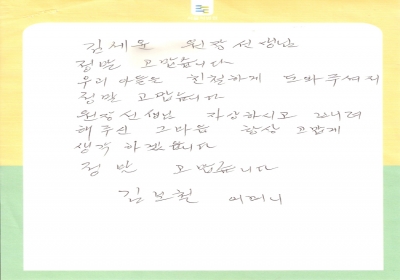 김세윤 원장선생님
정말 고맙습니다
우리 아들을 친절하게 도와주셔서
정말 고맙습니다
원장선생님 자상하시고
해주신 그마음 항상 고맙게
생각 하겠습니다
정말 고맙습니다
김보현 어머니